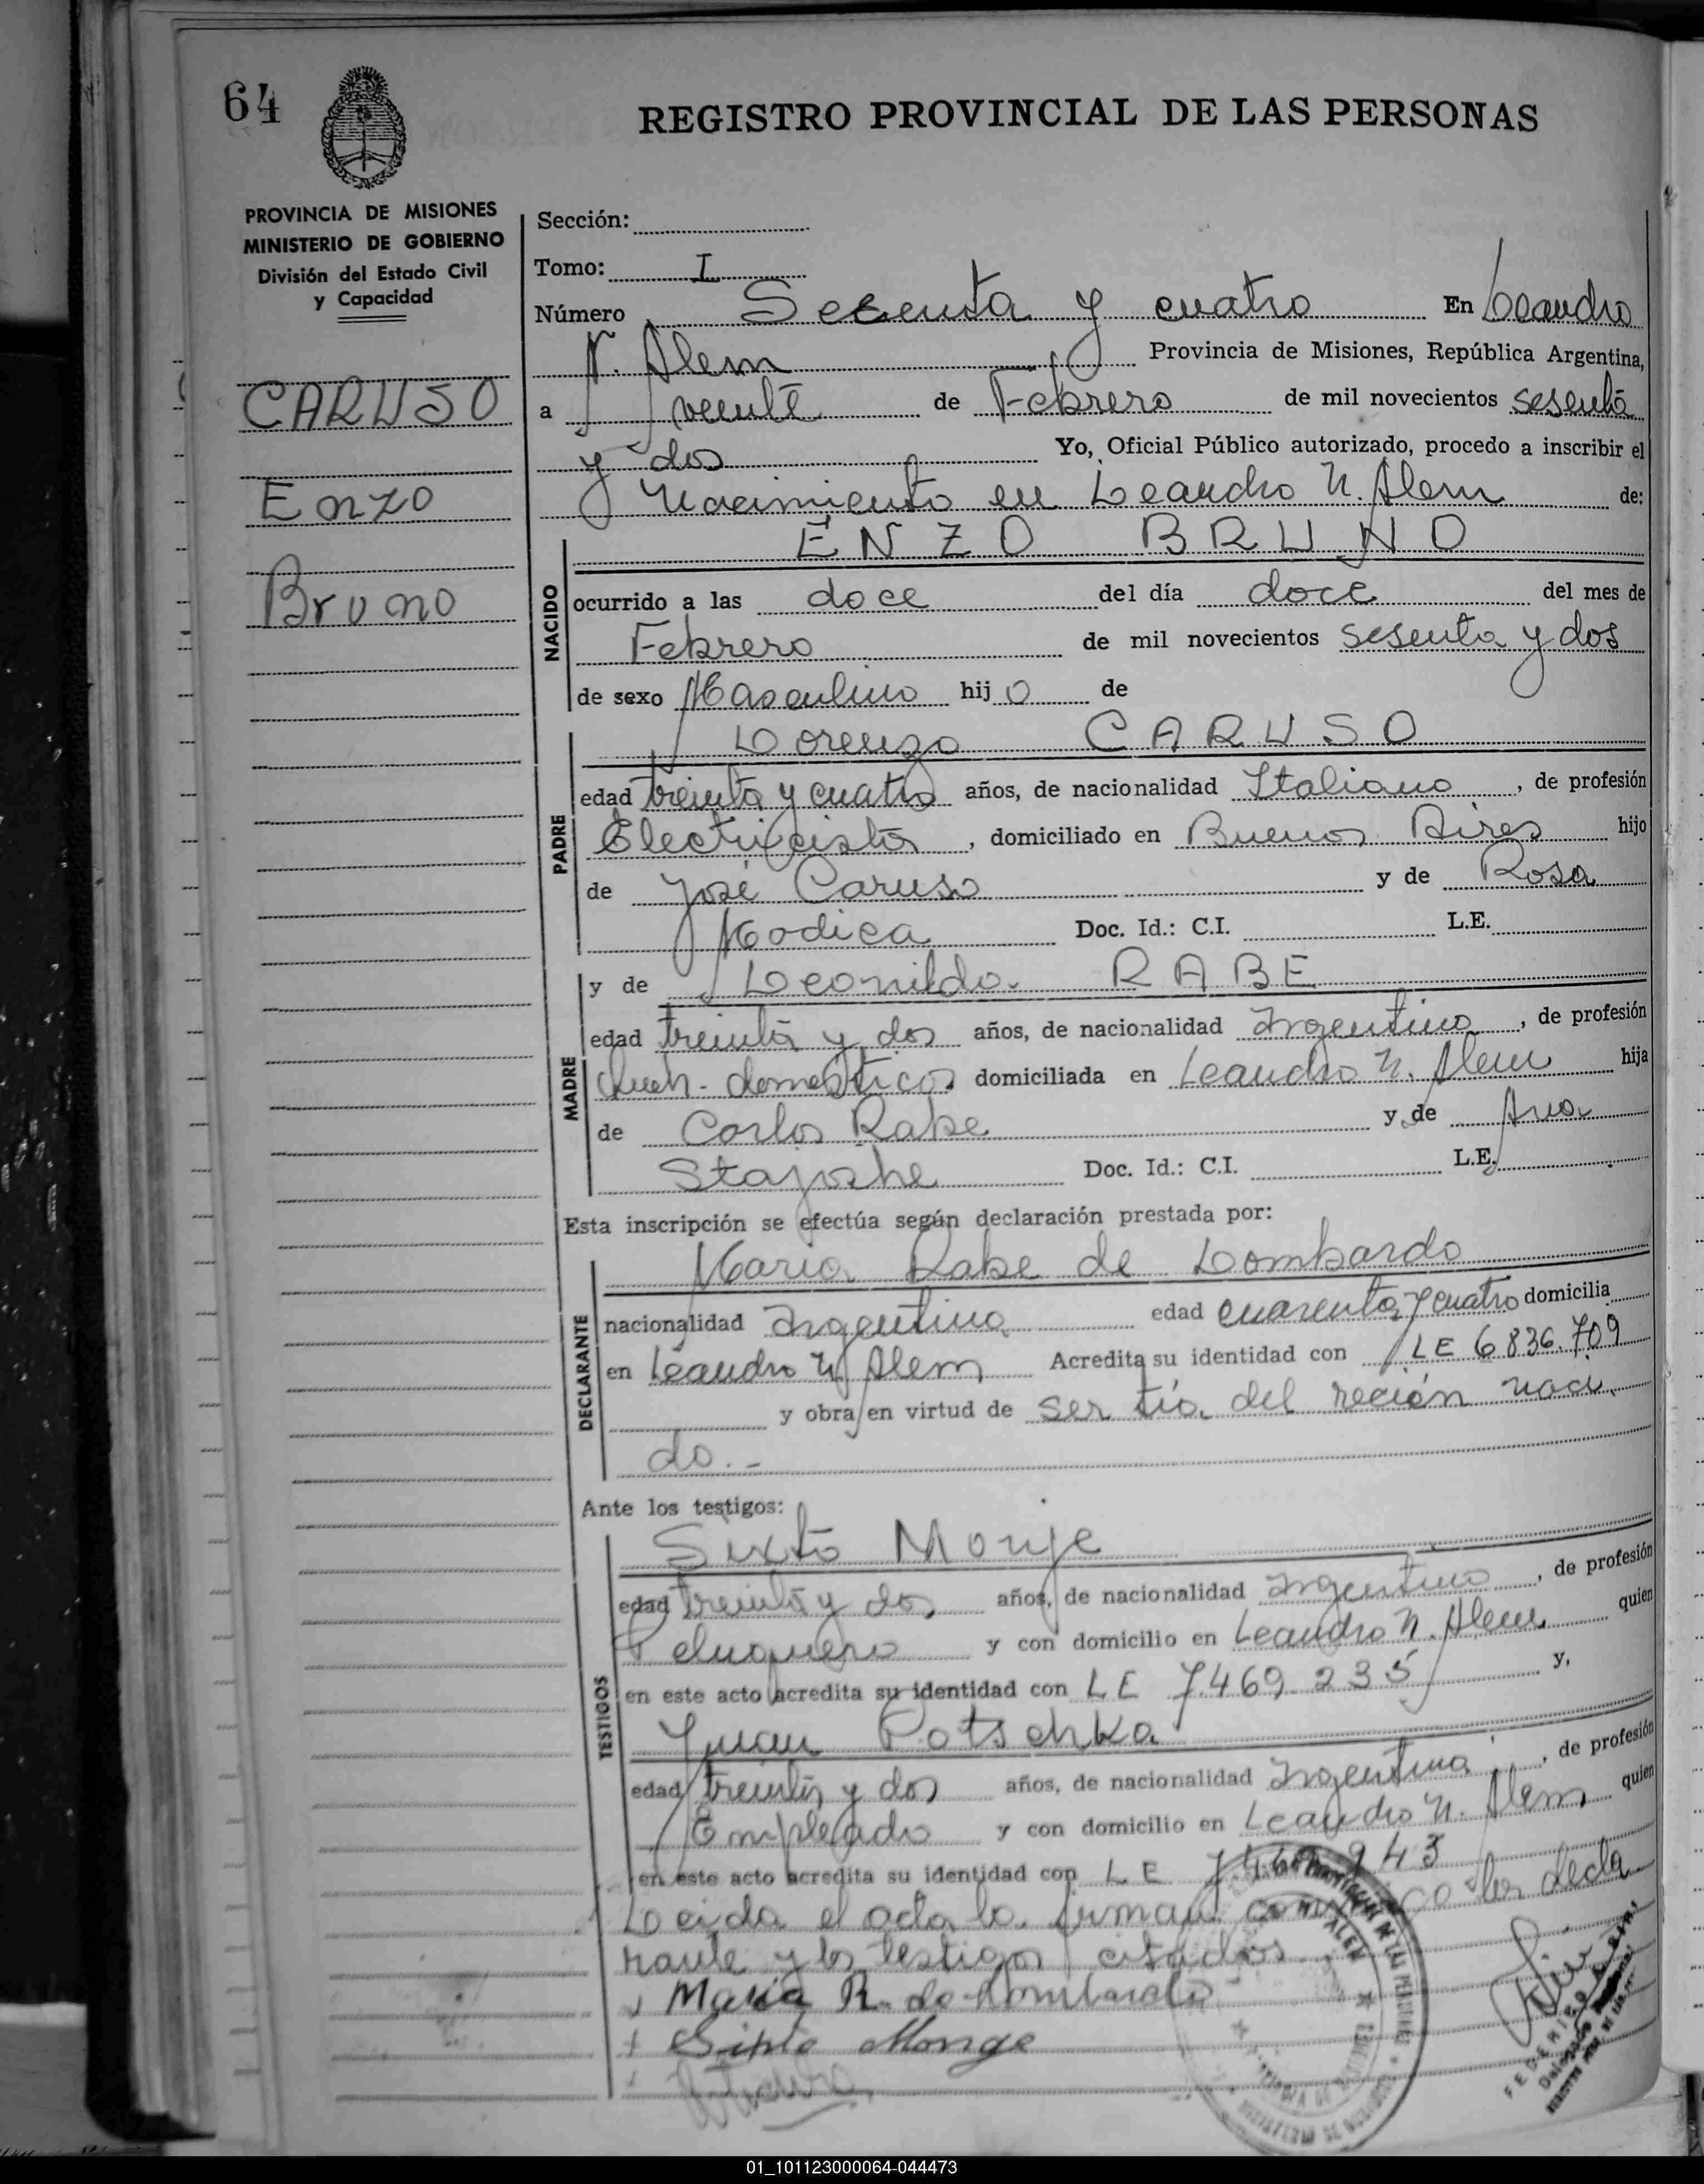 64
REGISTRO PROVINCIAL DE LAS PERSONAS
PROVINCIA DE MISIONES
MINISTERIO DE GOBIERNO
División del Estado Civil
y Capacidad
CARUSO
Enzo
Bruno
Sección:
Tomo: I
Número Sesenta y cuatro En Leandro
N. Alem Provincia de Misiones, República Argentina,
a veinte de Febrero de mil novecientos sesenta
y dos Yo, Oficial Público autorizado, procedo a inscribir el
Nacimiento en Leandro N. Alem de:
NACIDO
ENZO BRUNO
ocurrido a las doce del día doce del mes de
Febrero de mil novecientos sesenta y dos
de sexo Masculino hijo de
PADRE
Lorenzo CARUSO
edad treinta y cuatro años, de nacionalidad Italiano, de profesión
Electricista, domiciliado en Buenos Aires hijo
de José Caruso y de Rosa
Modica Doc. Id.: C.I. L.E.
MADRE
y de Leonilda RABE
edad treinta y dos años, de nacionalidad Argentina, de profesión
Queh. domesticos domiciliada en Leandro N. Alem hija
de Carlos Rabe y de Ana
Doc. Id.: C.I. L.E.
Esta inscripción se efectúa según declaración prestada por:
DECLARANTE
Maria Rabe de Lombardo
nacionalidad Argentina edad cuarenta y cuatro domicilia
en Leandro N. Alem Acredita su identidad con LE 6.836.709
y obra en virtud de ser tía del recién naci
do.-
Ante los testigos:
TESTIGOS
Sixto Monje
edad treinta y dos años, de nacionalidad Argentino, de profesión
Peluquero y con domicilio en Leandro N. Alem quien
en este acto acredita su identidad con LE 7.469.235 y,
Juan Potschka
edad treinta y dos años, de nacionalidad Argentina, de profesión
Empleado y con domicilio en Leandro N. Alem quien
en este acto acredita su identidad con LE
Leida el acta la firman conmigo la decla
rante y los testigos citados
Maria R. de Lombardo
Sixto Monge
01_101123000064-044473